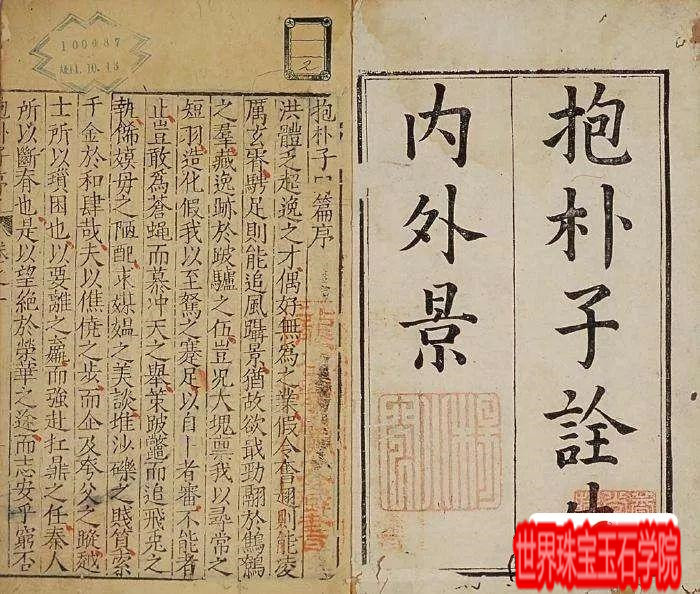 抱朴子詮
内外景
世界珠宝玉石学院
100087
11.10.13
2
抱朴子 篇序
洪體乏超逸之才偶好無爲之業假令奮翅則能凌
厲玄霄騁足則能追風躡景猶故欲戢勁翮於鷦鷃
之羣藏逸跡於跛驢之伍豈況大塊禀我以尋常之
短羽造化假我以至駑之蹇足以自卜者審不能者
止豈敢爲蒼蝇而慕冲天之舉策跛鼈而追飛兎之
軌飾嫫母之陋醜求媒媪之美談堆沙礫之賤質索
千金於和肆哉夫以僬僥之步而企及夸父之蹤越
士所以瑣困也以要離之羸而強赴扛鼎之任秦人
所以斷脊也是以望絶於榮華之途而志安乎窮否
抱朴子序